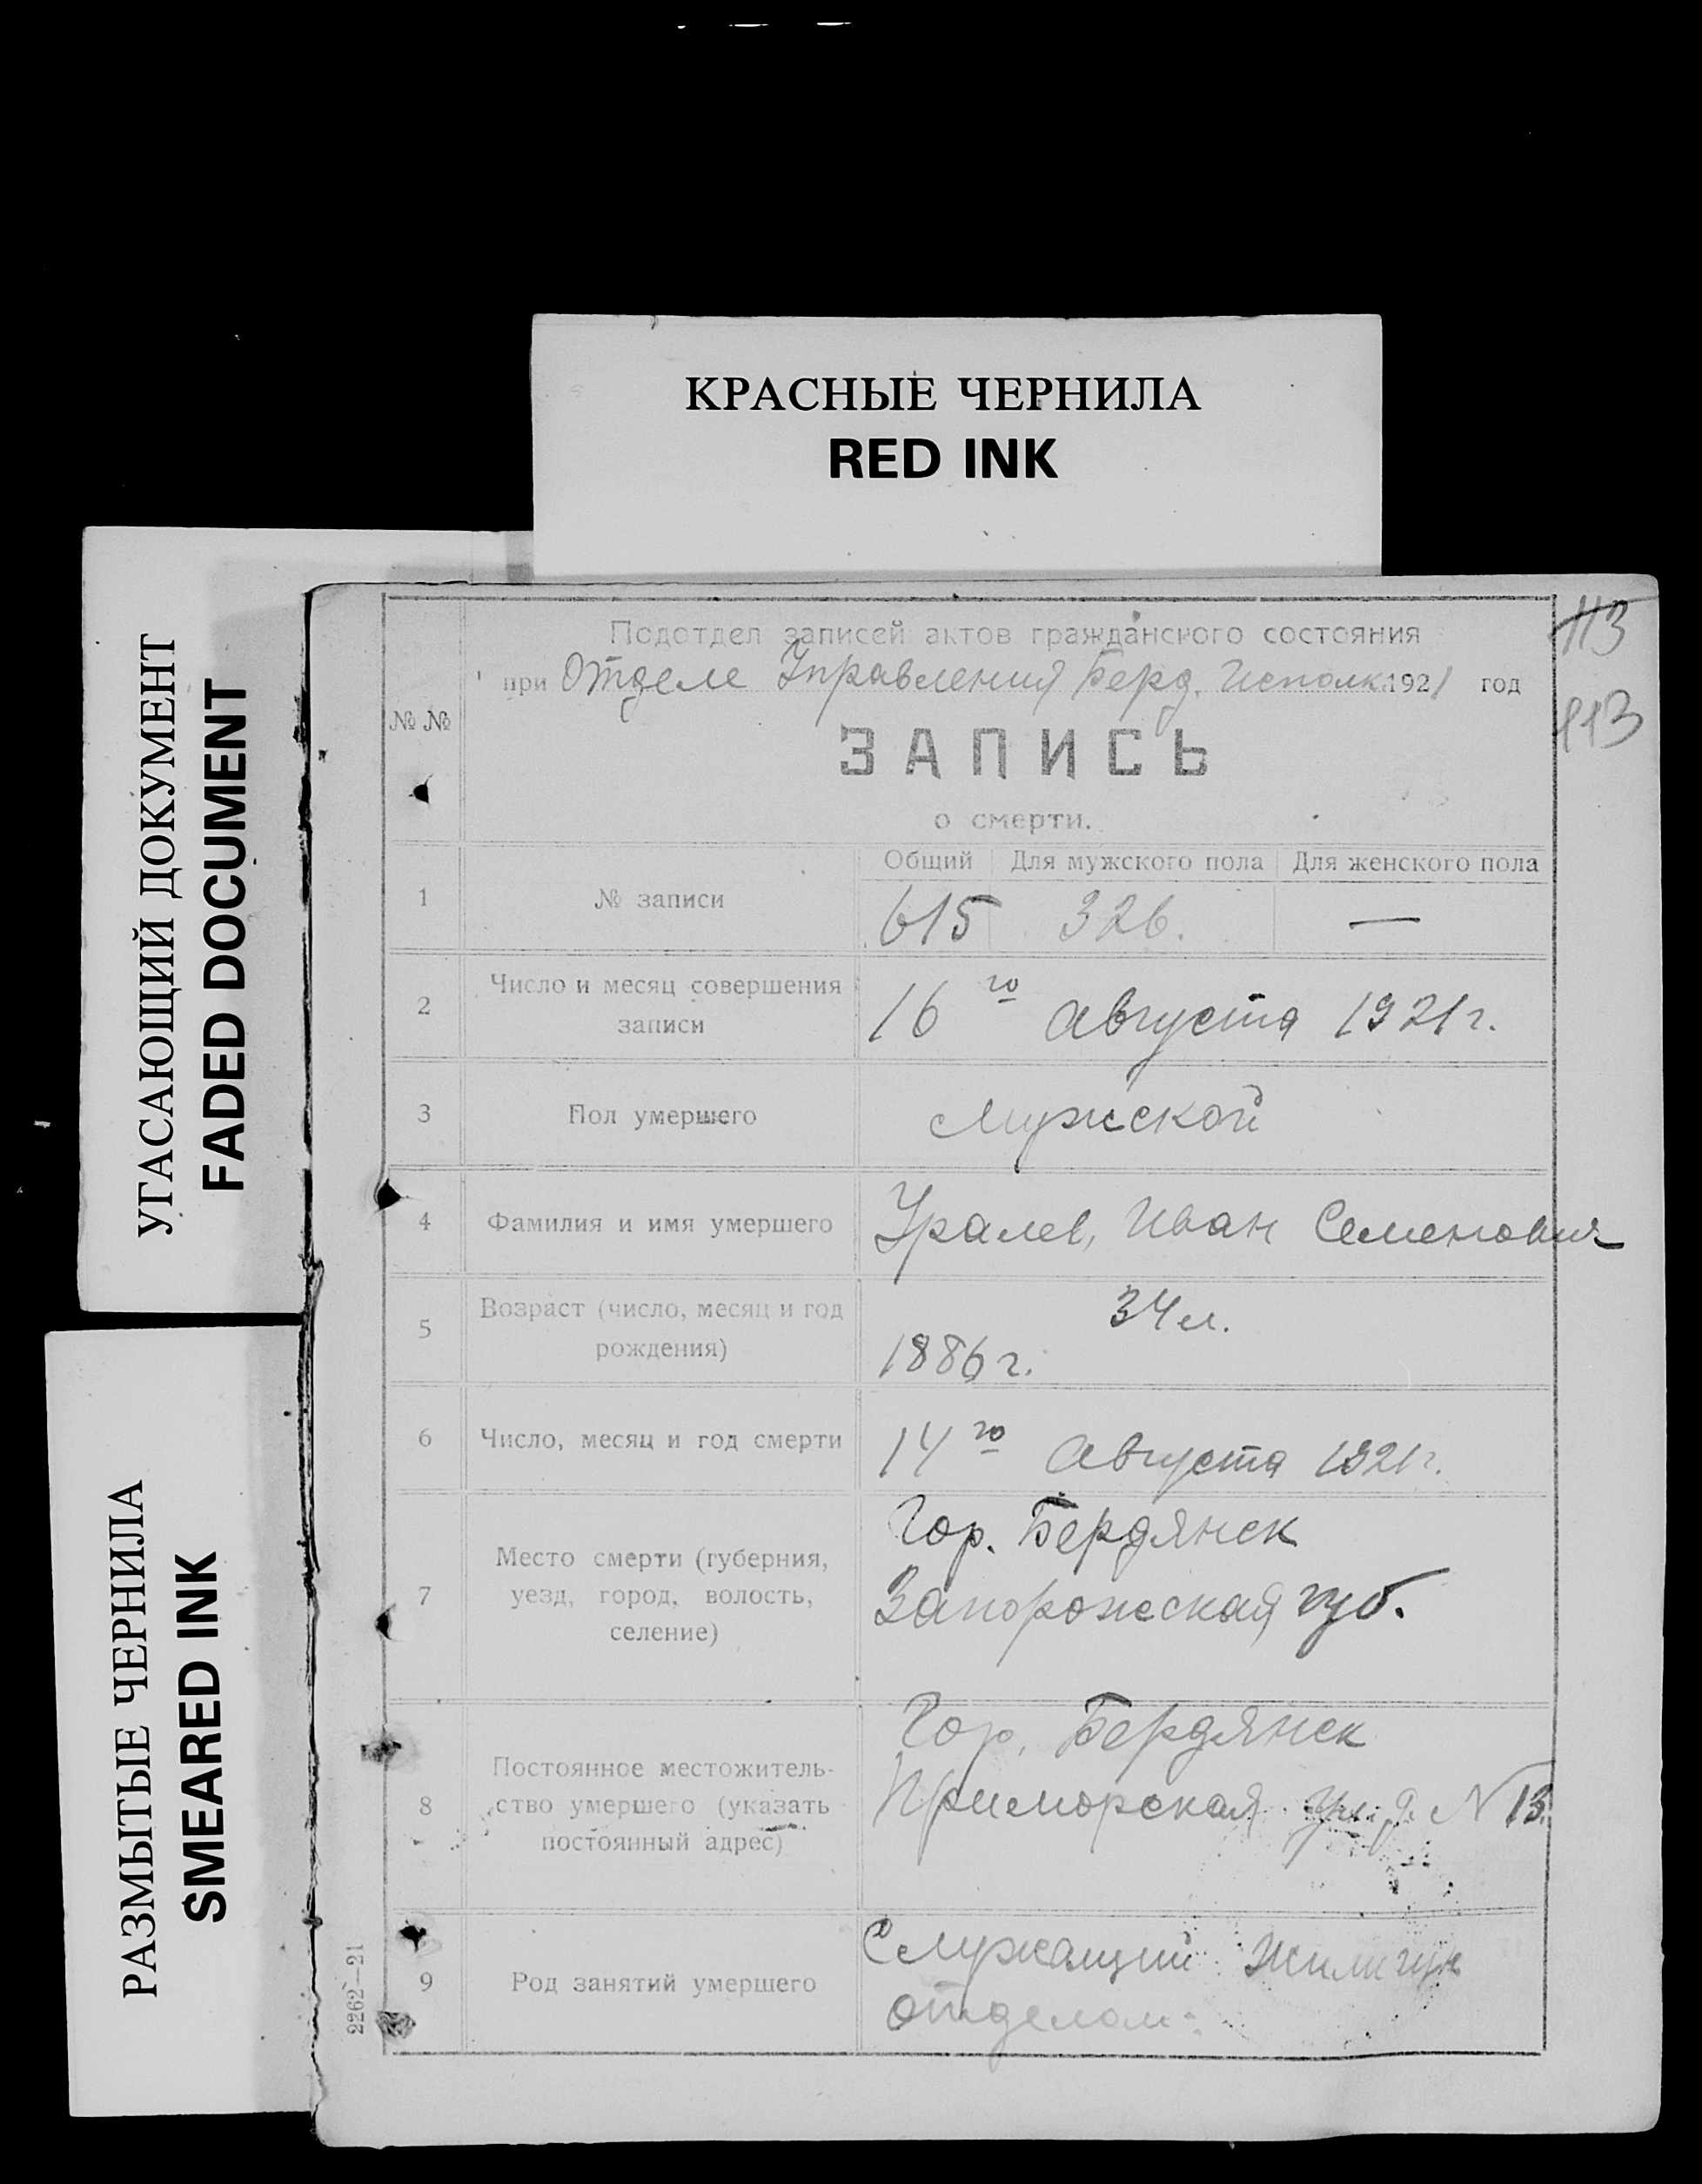 КРАСНЫЕ ЧЕРНИЛА
RED INK
УГАСАЮЩИЙ ДОКУМЕНТ
FADED DOCUMENT
РАЗМЫТЫЕ ЧЕРНИЛА
SMEARED INK
113
113
Подотдел записей актов гражданского состояния
при Отделе Управления Берд. Исполк. 1921 год
№ №
ЗАПИСЬ
о смерти.
Общий Для мужского пола Для женского пола
1 № записи 615 326. —
2 Число и месяц совершения
записи
16го августа 1921г.
3 Пол умершего мужской
4 Фамилия и имя умершего Уралев, Иван Семенович
5 Возраст (число, месяц и год
рождения)
34 л.
1886 г.
6 Число, месяц и год смерти 14го августа 1921г.
7 Место смерти (губерния,
уезд, город, волость,
селение)
Гор. Бердянск
Запорожская губ.
8 Постоянное местожитель-
ство умершего (указать
постоянный адрес)
Гор. Бердянск
Приморская ул. д. N 13.
9 Род занятий умершего
Служащий
отделом
2262—21